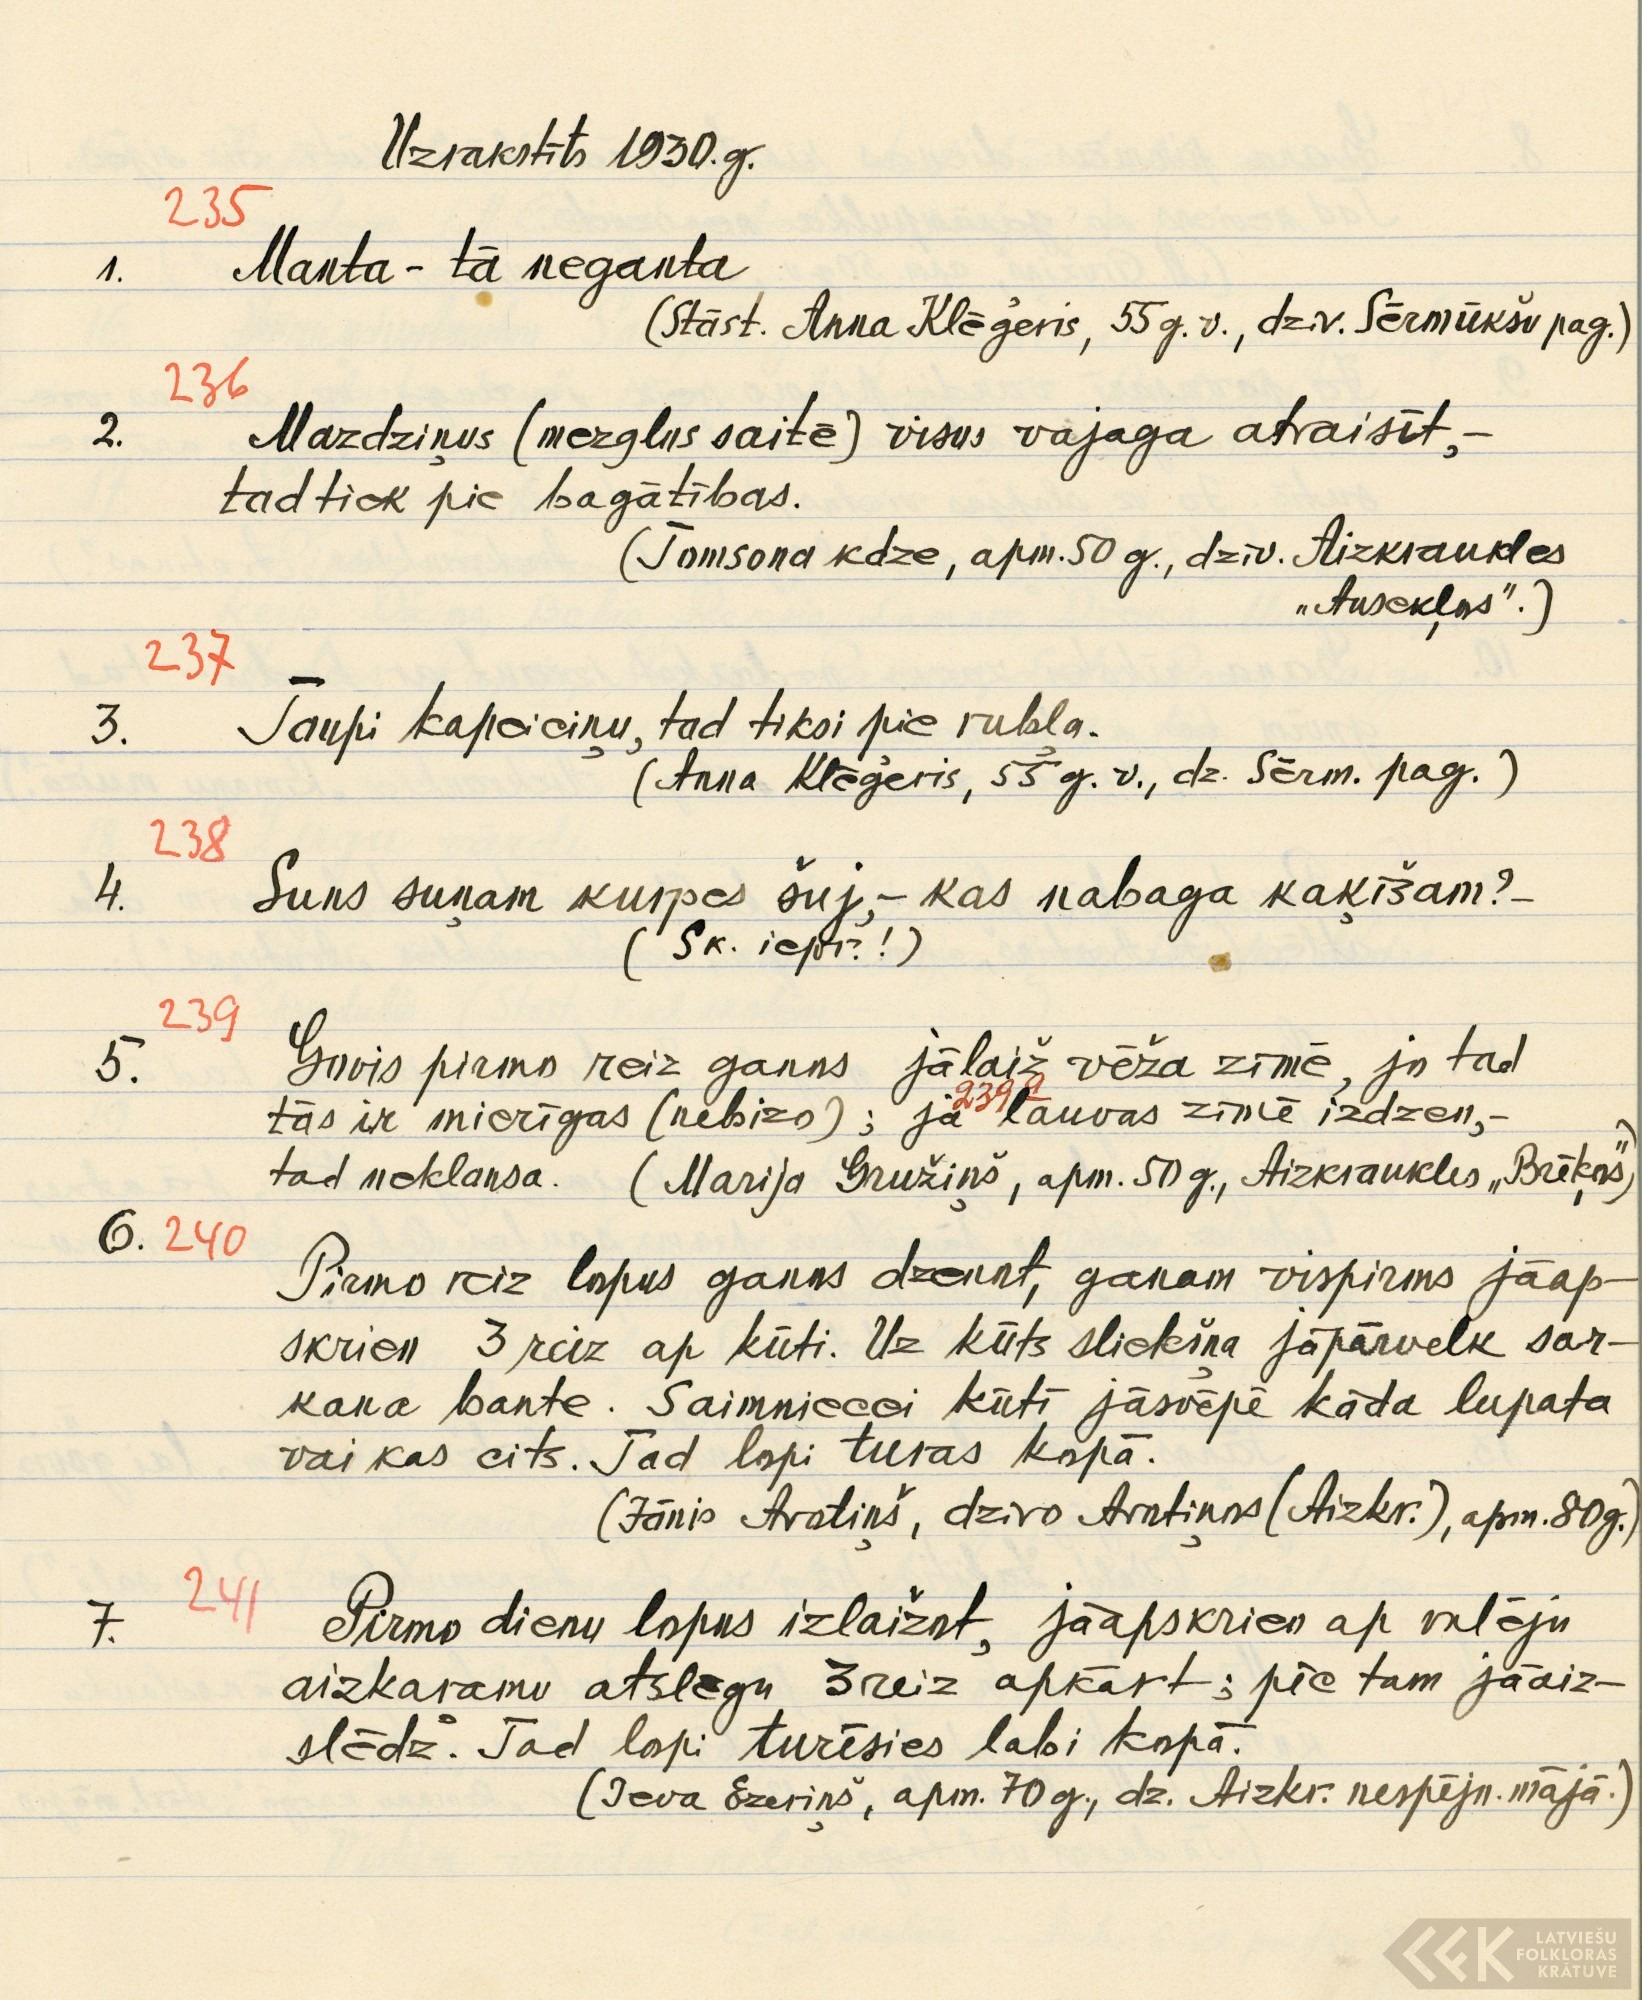 Uzrakstīts 1930.g.
235
1. Manta - tā neganta
(Stāst. Anna Klēģeris, 55 g. v., dzīv. Sērmūkšu pag.)
236
2. Mazdziņus (mezglus saitē) visus vajaga atraisīt,-
tad tiek pie bagātības.
(Tomsona kdze, apm. 50 g., dzīv. Aizkraukles
„Ausekļos".)
237
3. Taupi kapeiciņu, tad tiksi pie rubļa.
(Anna Klēģeris, 55 g. v., dz. Sērm. pag.)
238
4. Suns suņam kurpes šuj,- kas nabaga kaķīšam?-
(Sk. iepr.!)
239
5. Govis pirmo reiz ganos jālaiž vēža zīmē, jo tad
239a
tās ir mierīgas (nebizo); ja lauvas zīmē izdzen,-
tad neklausa. (Marija Gružiņš, apm. 50 g., Aizkraukles „Brēķos")
6. 240
Pirmo reiz lopus ganos dzenot, ganam vispirms jāap-
skrien 3 reiz ap kūti. Uz kūts sliekšņa jāpārvelk sar-
kana bante. Saimniecei kūtī jāsvēpē kāda lupata
vai kas cits. Tad lopi turas kopā.
(Jānis Arotiņš, dzīvo Arotiņos (Aizkr.), apm. 80 g.)
241
7. Pirmo dienu lopus izlaižot, jāapskrien ap vaļēju
aizkaramo atslēgu 3 reiz apkārt; pēc tam jāaiz-
slēdz. Tad lopi turēsies labi kopā.
(Ieva Ezeriņš, apm. 70 g., dz. Aizkr. nespējn. mājā.)
LATVIEŠU
FOLKLORAS
KRĀTUVE